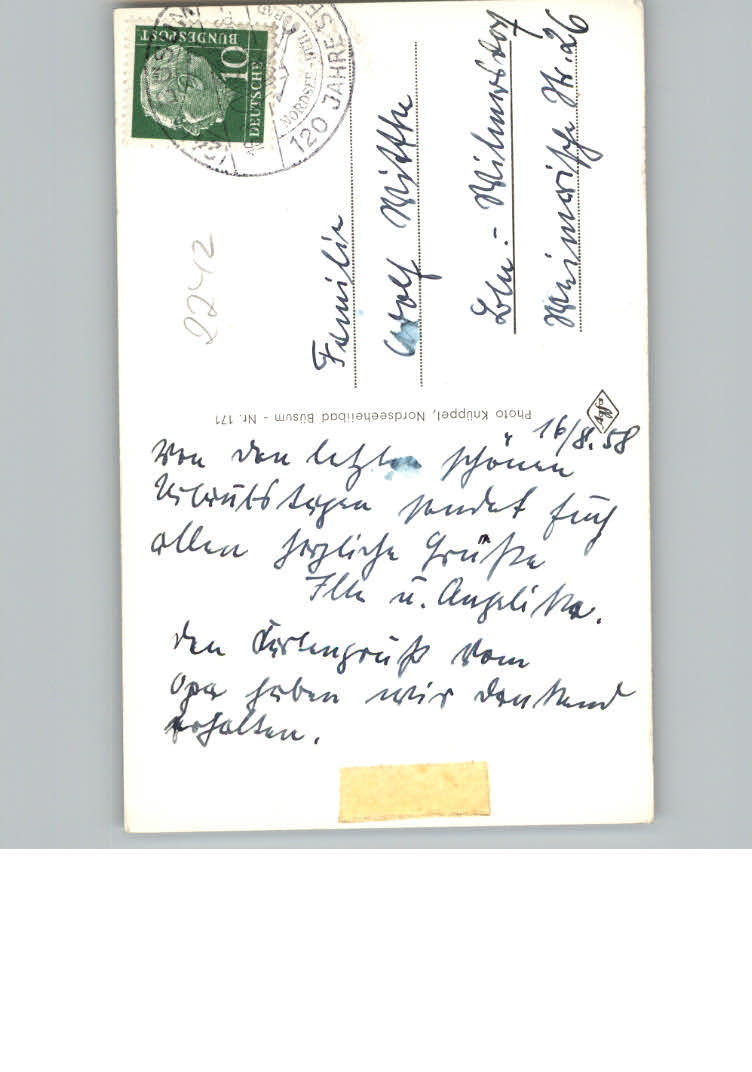 16/8.58
Von den letzten schönen
Urlaubstagen sendet Euch
allen herzliche Grüße
Ilse u. Angelika.
Den Kartengruß vom
Opa haben wir dankend
erhalten.
Familie
Adolf Witthe
Bln.- Wilmersdorf
Weimarische Str. 26
Photo Knüppel, Nordseeheilbad Büsum - Nr. 171
Agfa
2242
DEUTSCHE
BUNDESPOST
10
120 JAHRE
NORDSEE-HEIL